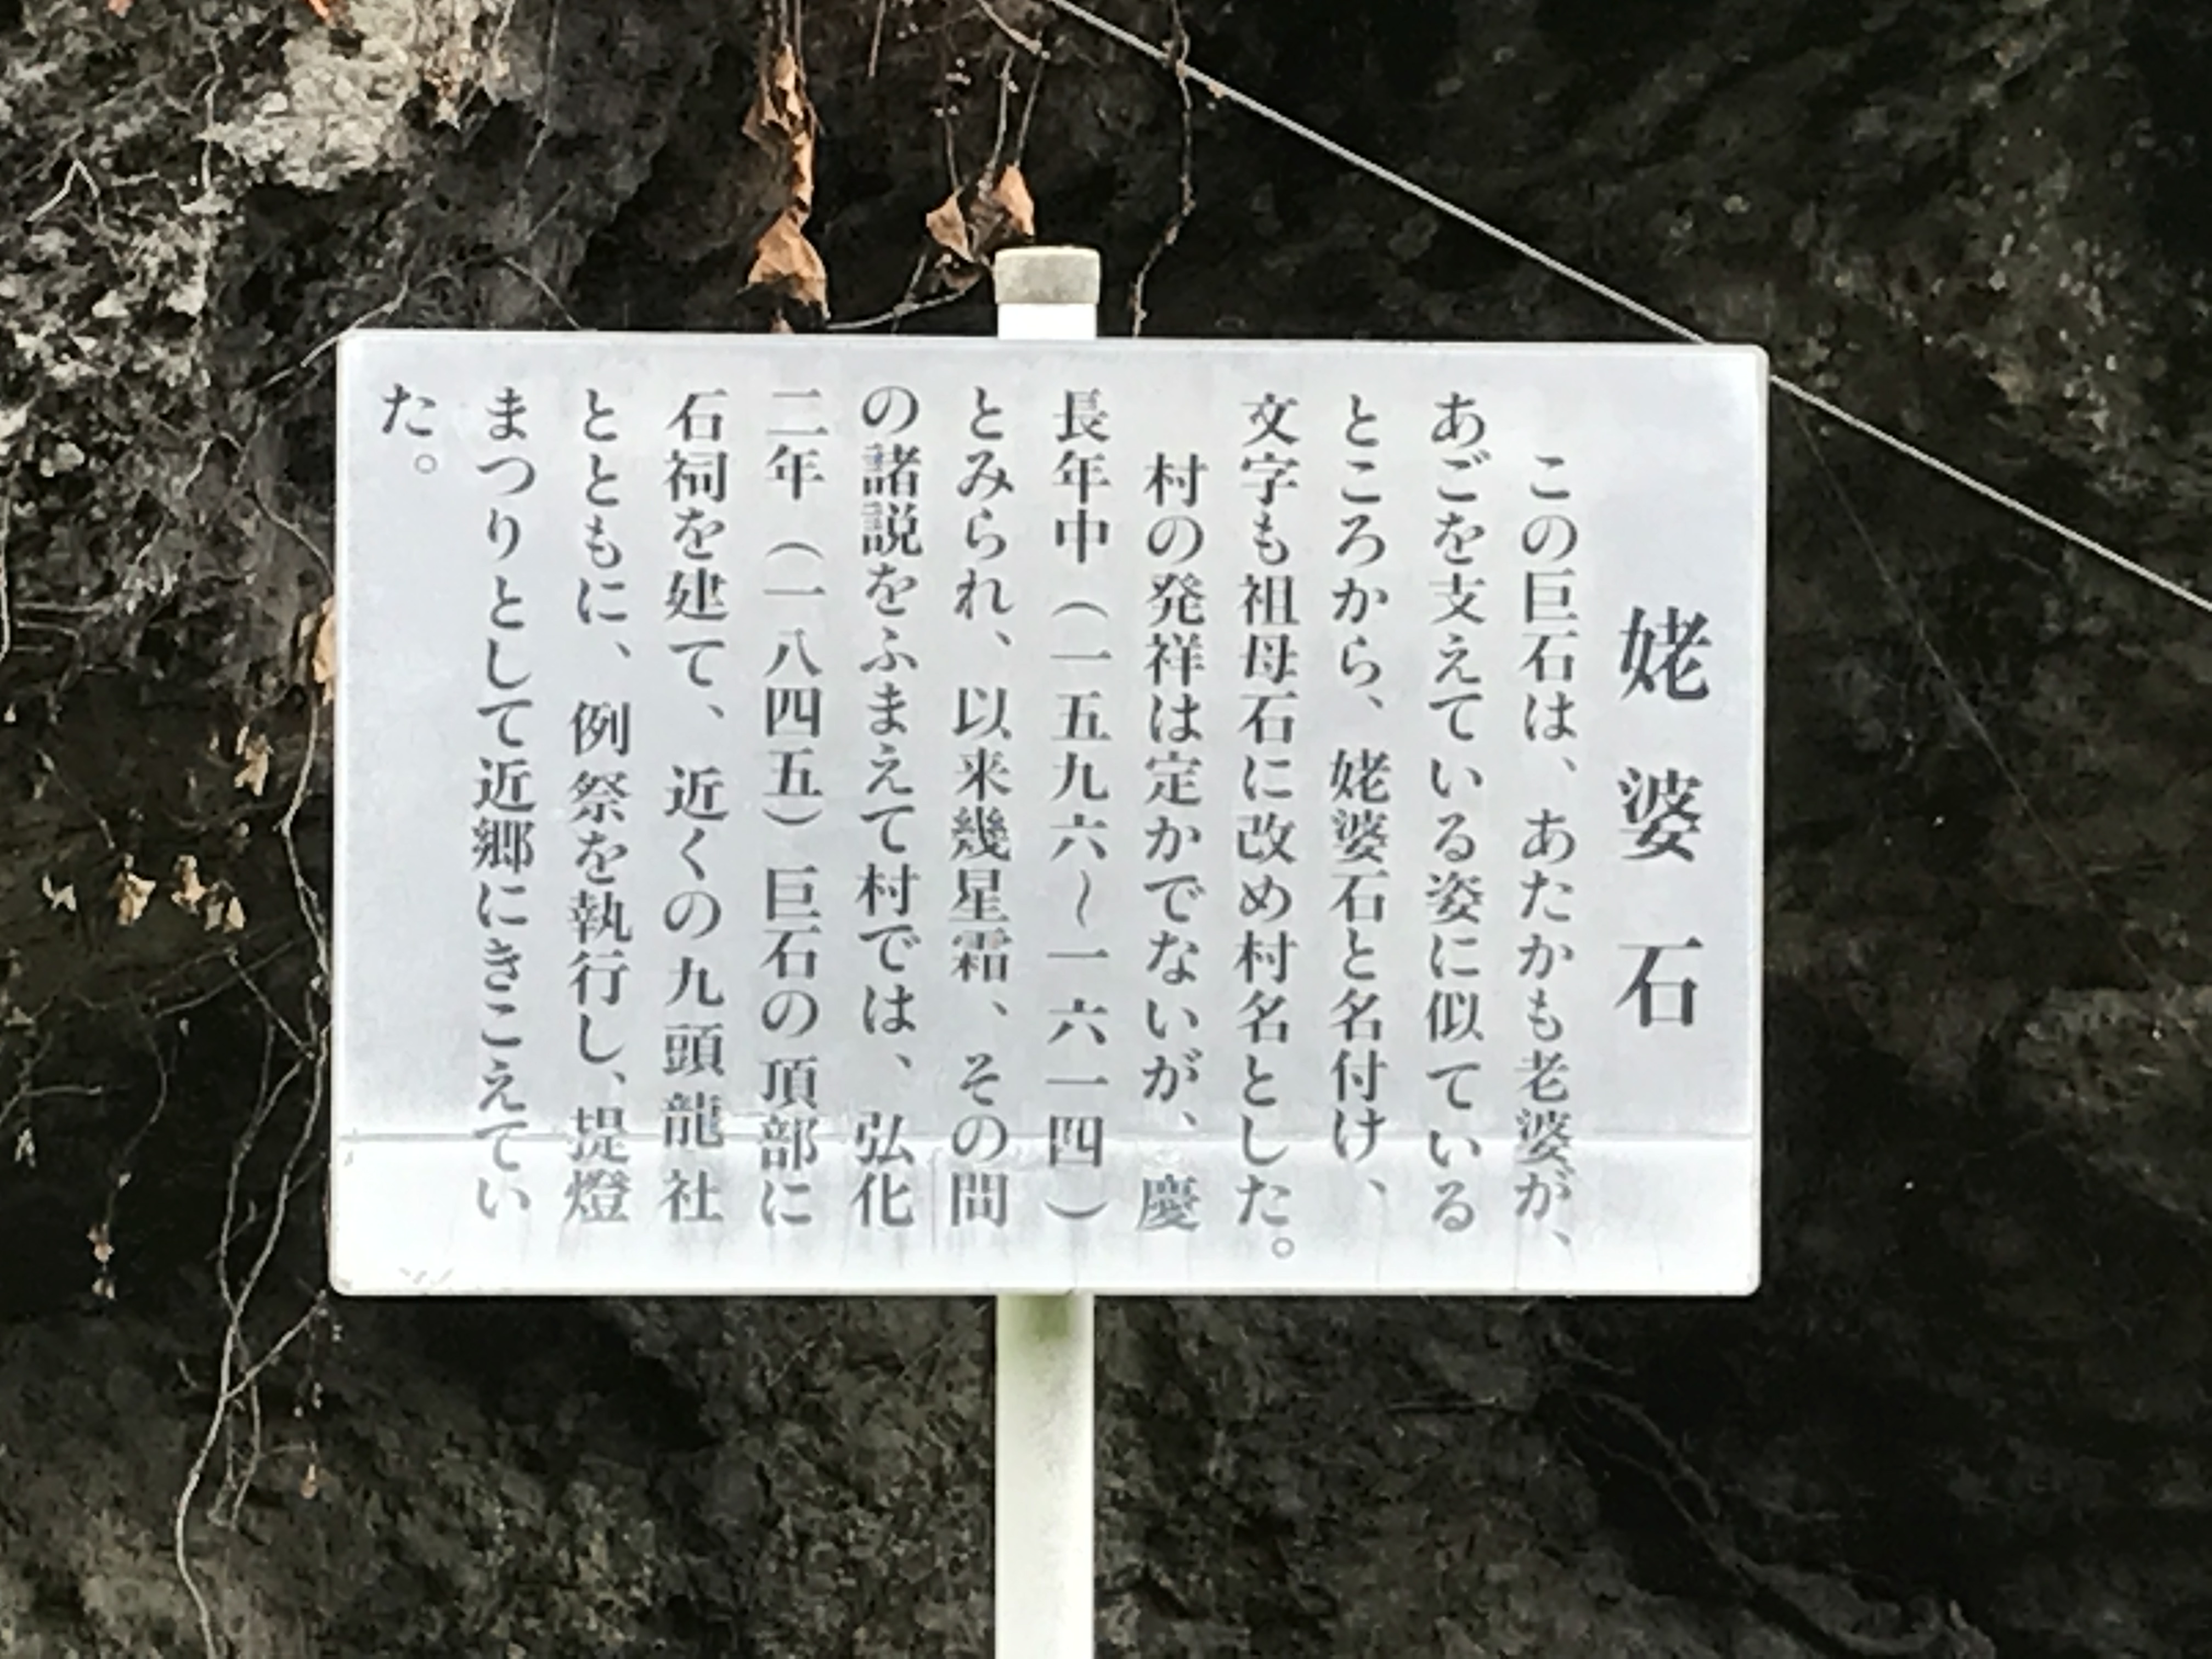 姥婆石
この巨石は、あたかも老婆が、
あごを支えている姿に似ている
ところから、姥婆石と名付け、
文字も祖母石に改め村名とした。
村の発祥は定かでないが、慶
長年中（一五九六〜一六一四）
とみられ、以来幾星霜、その間
の諸説をふまえて村では、弘化
二年（一八四五）巨石の頂部に
石祠を建て、近くの九頭龍社
とともに、例祭を執行し、提燈
まつりとして近郷にきこえてい
た。